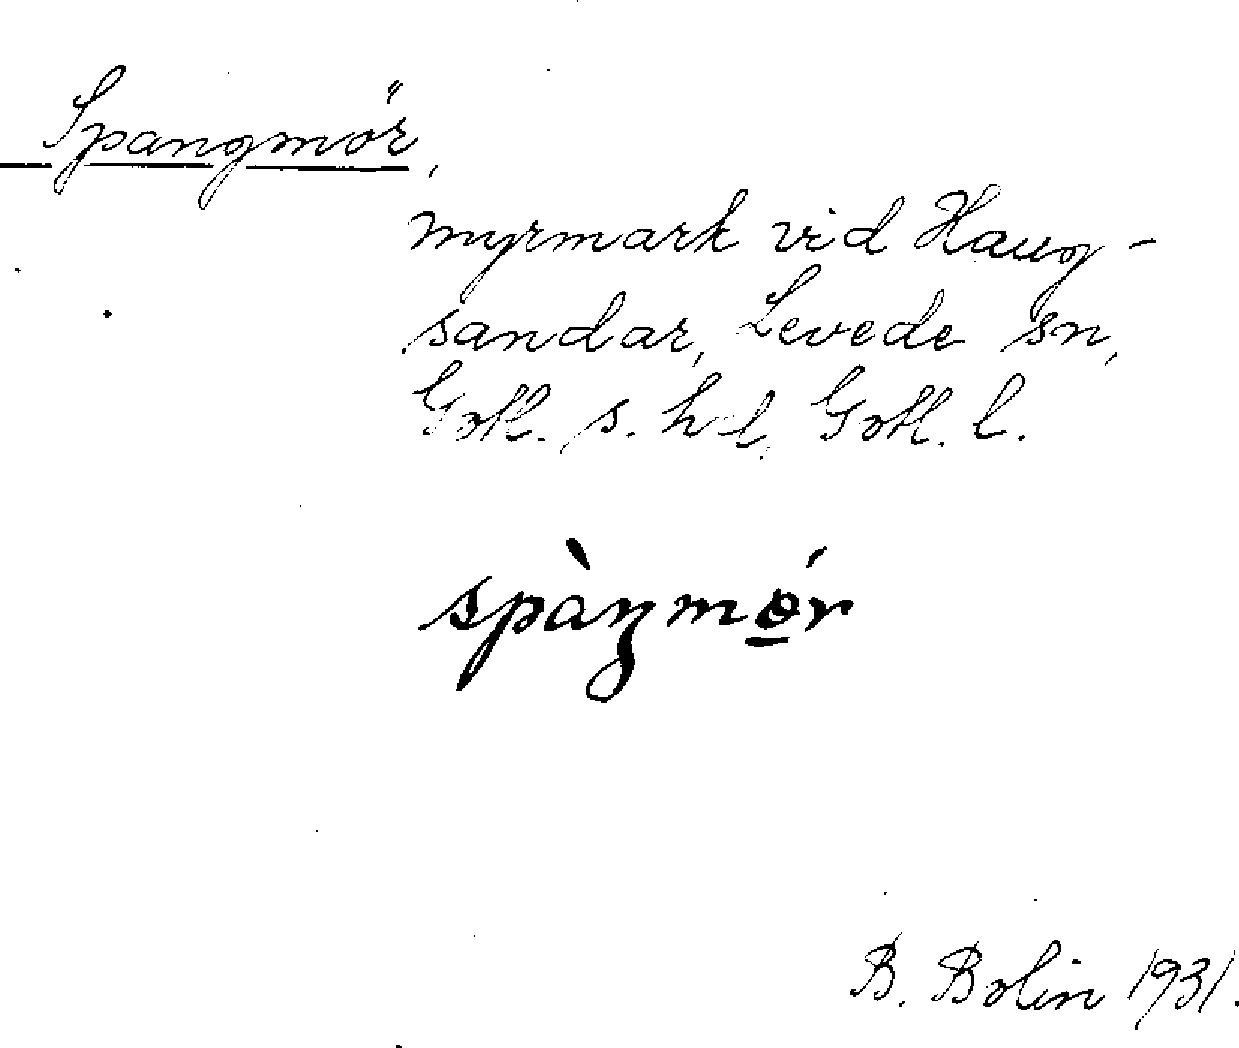 Spangmör,
myrmark vid Haug-
sandar, Levede sn,
Gotl. s. hd, Gotl. l.
spàŋmǿr
B. Bolin 1931.